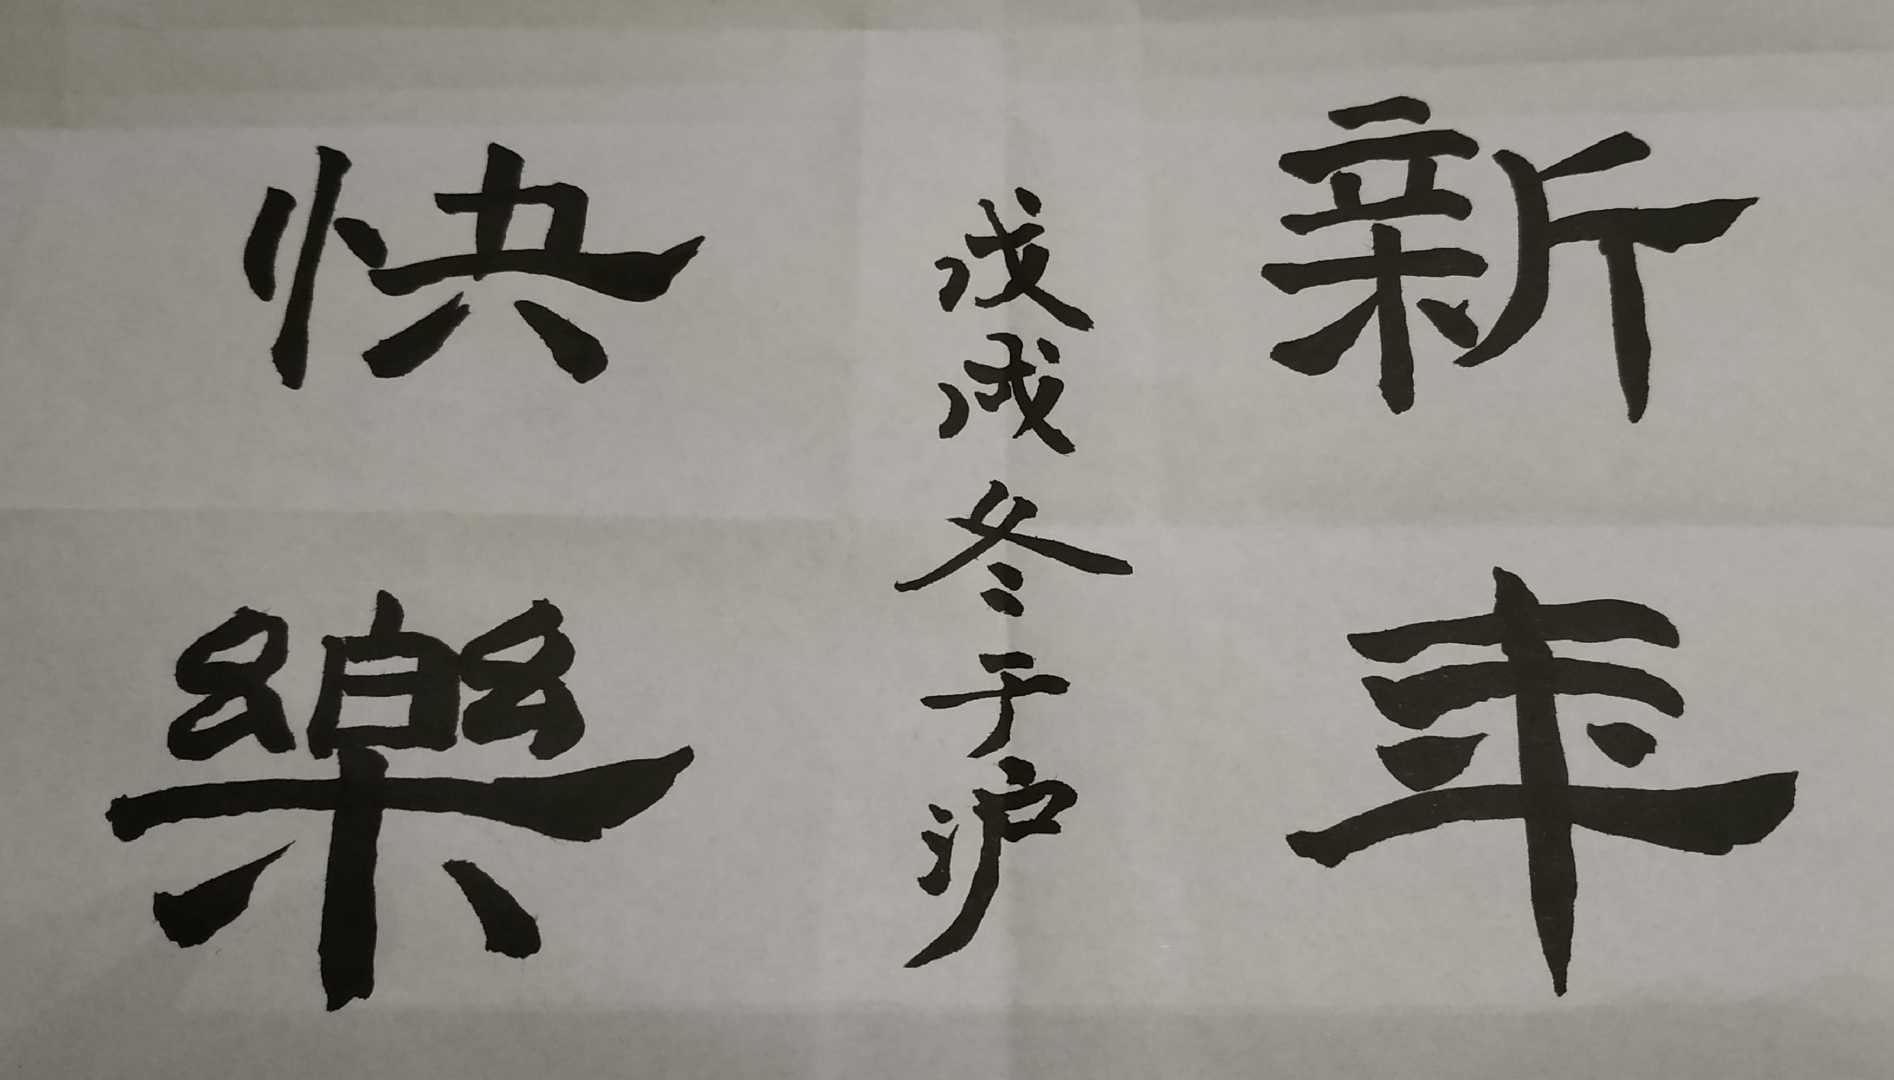 新年
戊戌冬于沪
快樂